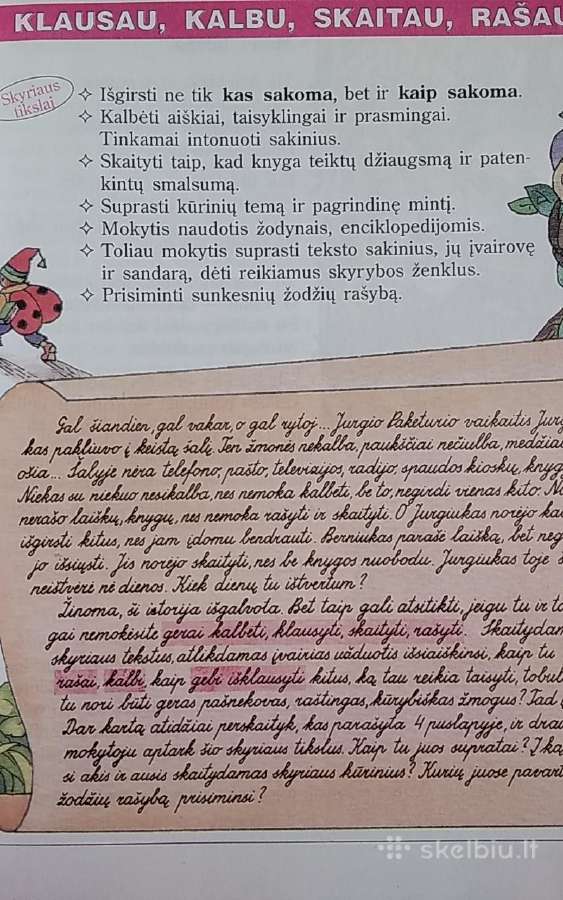 KLAUSAU, KALBU, SKAITAU, RAŠAU
Skyriaus
tikslai
✧ Išgirsti ne tik kas sakoma, bet ir kaip sakoma.
✧ Kalbėti aiškiai, taisyklingai ir prasmingai.
Tinkamai intonuoti sakinius.
✧ Skaityti taip, kad knyga teiktų džiaugsmą ir paten-
kintų smalsumą.
✧ Suprasti kūrinių temą ir pagrindinę mintį.
✧ Mokytis naudotis žodynais, enciklopedijomis.
✧ Toliau mokytis suprasti teksto sakinius, jų įvairovę
ir sandarą, dėti reikiamus skyrybos ženklus.
✧ Prisiminti sunkesnių žodžių rašybą.
Gal šiandien, gal vakar, o gal rytoj... Jurgio Paketurio vaikaitis Jur
kas pakliuvo į keistą šalį. Ten žmonės nekalba, paukščiai nečiulba, medžiai
ošia... Šalyje nėra telefono, pašto, televizijos, radijo, spaudos kioskų, knyg
Niekas su niekuo nesikalba, nes nemoka kalbėti, be to, negirdi vienas kito.
nerašo laiškų, knygų, nes nemoka rašyti ir skaityti. O Jurgiukas norėjo ka
išgirsti kitus, nes jam įdomu bendrauti. Berniukas parašė laišką, bet neg
jo išsiųsti. Jis norėjo skaityti, nes be knygos nuobodu. Jurgiukas toje š
neištvėrė nė dienos. Kiek dienų tu ištvertum?
Žinoma, ši istorija išgalvota. Bet taip gali atsitikti, jeigu tu ir ta
gai nemokėsite gerai kalbėti, klausyti, skaityti, rašyti. Skaitydam
skyriaus tekstus, atlikdamas įvairias užduotis išsiaiškinsi, kaip tu
rašai, kalbi, kaip gebi išklausyti kitus, ką tau reikia taisyti, tobul
tu nori būti geras pašnekovas, raštingas, kūrybiškas žmogus? Tad
Dar kartą atidžiai perskaityk, kas parašyta 4 puslapyje, ir drau
mokytoju aptark šio skyriaus tikslus. Kaip tu juos supratai? Į ką
si akis ir ausis skaitydamas skyriaus kūrinius? Kurių juose pavart
žodžių rašybą prisiminsi?
skelbiu.lt